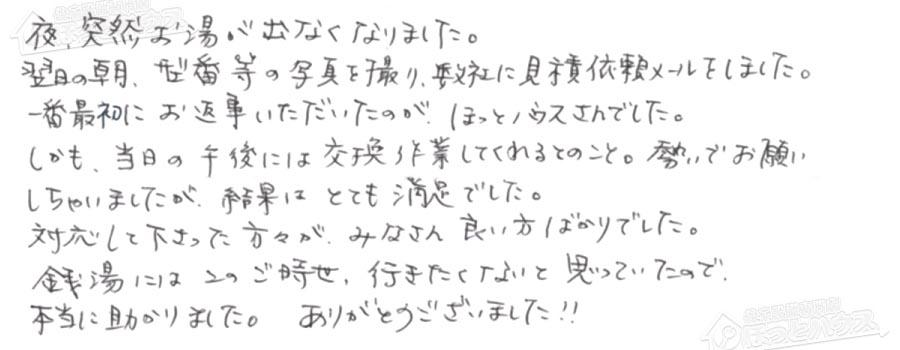 夜、突然お湯が出なくなりました。
翌日の朝、型番等の写真を撮り、数社に見積依頼メールをしました。
一番最初にお返事いただいたのが、ほっとハウスさんでした。
しかも、当日の午後には交換作業してくれるとのこと。勢いでお願い
しちゃいましたが、結果はとても満足でした。
対応して下さった方々が、みなさん良い方ばかりでした。
銭湯にはこのご時世、行きたくないと思っていたので、
本当に助かりました。 ありがとうございました!!
ほっとハウス